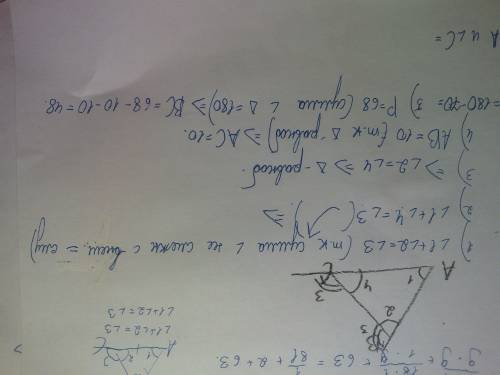 + 63 = 1/81 + 2 + 63.
∠1+∠2=∠3
∠1+∠2=∠3
A 1 2 3
A 1 2 3 4 3
1) ∠1+∠2=∠3 (т.к сумма ∠ не смежн с внеш. = ему)
2) ∠1+∠4=∠3 ( ) ⇒
3) ⇒ ∠2=∠4 ⇒ Δ-равноб.
4) AB=10 (т.к Δ-равноб) ⇒ AC=10.
=180-70= 3) P=68 (сумма ∠ Δ =180) ⇒ BC=68-10-10=48.
A и ∠C=